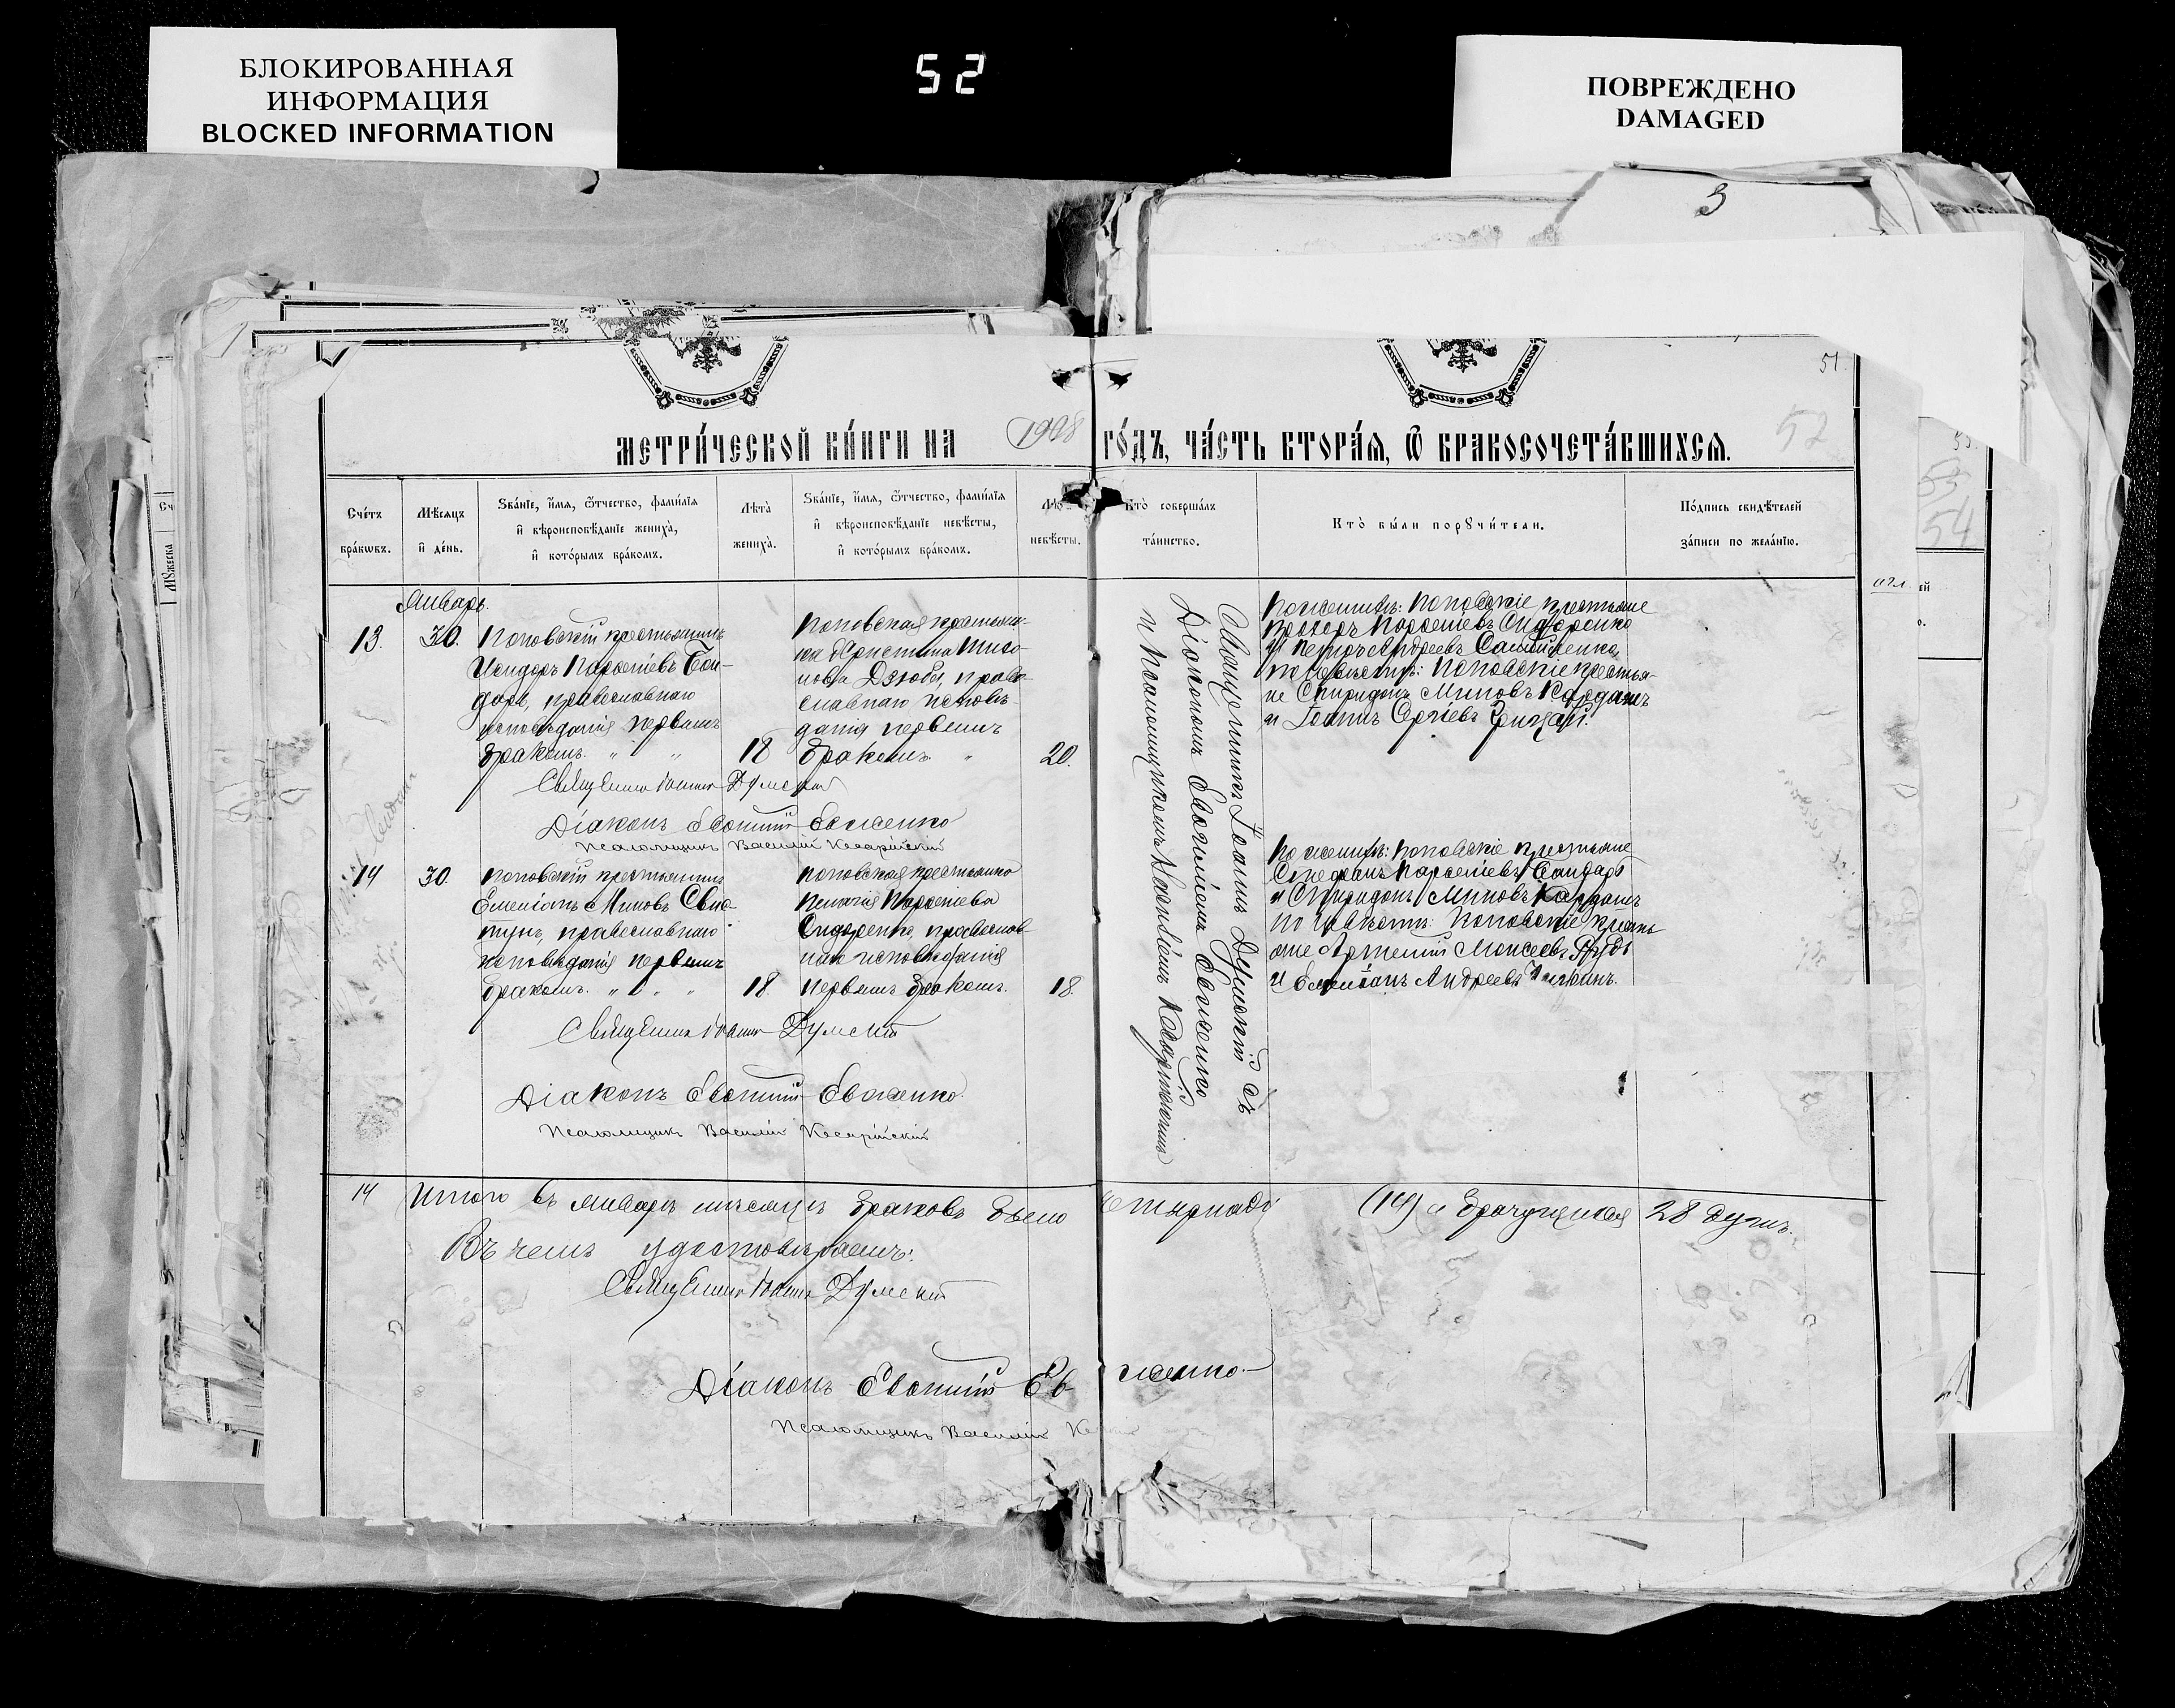 БЛОКИРОВАННАЯ
ИНФОРМАЦИЯ
BLOCKED INFORMATION
52
ПОВРЕЖДЕНО
DAMAGED
3
51.
52
54
МЕТРИ́ЧЕСКОЙ КНИ́ГИ НА 1908 ГО́ДЪ, ЧА́СТЬ ВТОРА́Я, Ѿ БРАКОСОЧЕТА́ВШИХСЯ.
Сче́тъ
бра́кѡвъ.
Мѣ́сяцъ
и҆ де́нь.
Зва́нїе, и҆́мя, ѻ҆́тчество, фами́лїя
и҆ вѣроисповѣ́данїе жениха̀,
и҆ кото́рымъ бра́комъ.
Лѣта̀
жениха̀.
Зва́нїе, и҆́мя, ѻ҆́тчество, фами́лїя
и҆ вѣроисповѣ́данїе невѣ́сты,
и҆ кото́рымъ бра́комъ.
невѣ́сты.
Кто̀ соверша́лъ
та́инство.
Кто̀ бы́ли порꙋчи́тели.
По́дпись свидѣ́телей
за́писи по жела́нїю.
Январь.
13.
30.
Поповскій крестьянинъ
Исидоръ Парѳеніевъ Бон-
даръ, православнаго
исповѣданія первымъ
бракомъ. " "
18
Поповская крестьян-
ка Христина Тимо-
нова Дзюба, право-
славнаго исповѣ-
данія первымъ
бракомъ. "
20.
Священникъ Іоаннъ Думскій съ
Діакономъ Евѳиміемъ Евженко
и Псаломщикомъ Василіемъ Кесарійскимъ
По женихѣ: Поповскіе крестьяне
Прохоръ Парѳеніевъ Сидоренко
и Петръ Андреевъ Самойленко,
по невѣстѣ: Поповскіе крестья-
не Спиридонъ Миновъ Кардашъ
и Іоаннъ Сергіевъ Грицай.
Священникъ Іоаннъ Думскій
Діаконъ Евѳимій Евженко
Псаломщикъ Василій Кесарійскій
14
30.
Поповскій крестьянинъ
Емеліанъ Миновъ Сви-
тунъ, православнаго
исповѣданія первымъ
бракомъ. " " "
18
Поповская крестьянка
Пелагія Парѳеніева
Сидоренко, православ
наго исповѣданія
первымъ бракомъ.
18.
По женихѣ: Поповскіе крестьяне
Стефанъ Парѳеніевъ Бондарь
и Спиридонъ Миновъ Кардашъ
по невѣстѣ: Поповскіе крестья
не Артемій Моисеевъ
и Емеліанъ Андреевъ
Священникъ Іоаннъ Думскій
Діаконъ Евѳимій Евженко.
Псаломщикъ Василій Кесарійскій
14
Итого въ январѣ мѣсяцѣ браковъ было четырнадц (14) а брачущихся 28 душъ.
Въ чемъ удостовѣряемъ:
Священникъ Іоаннъ Думскій
Діаконъ Евѳимій Евженко.
Псаломщикъ Василій